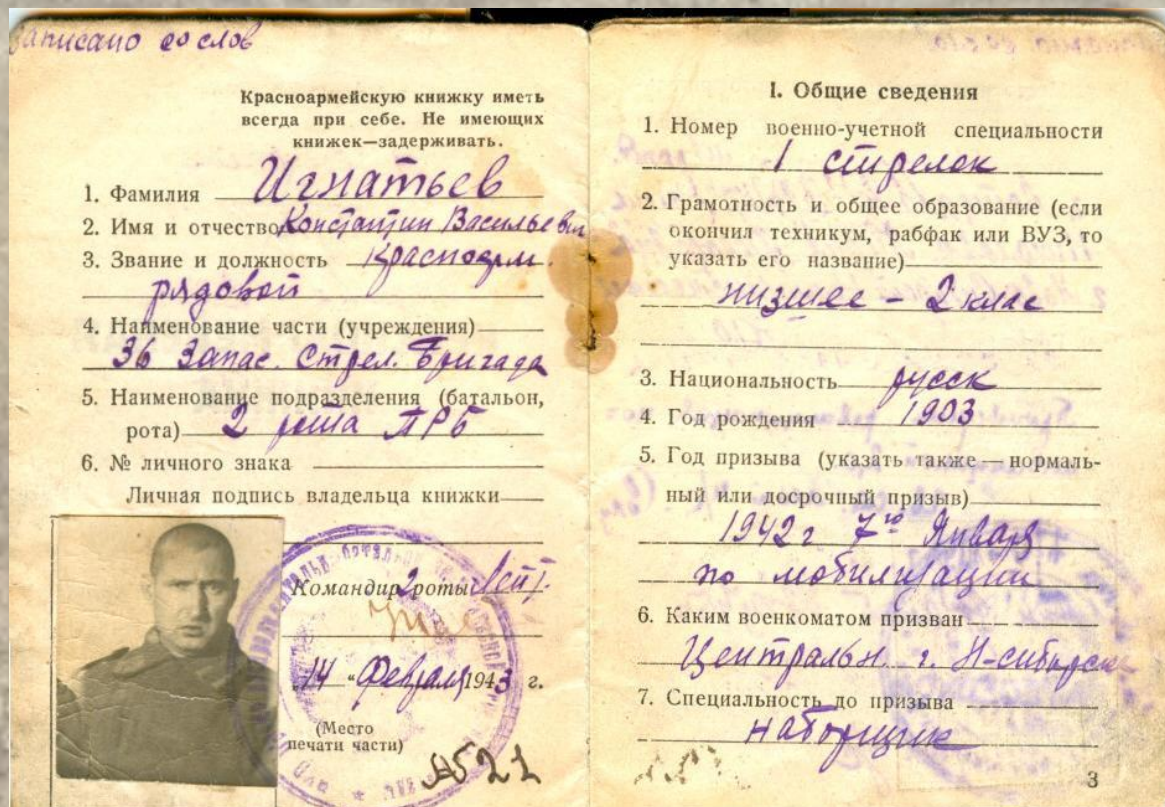 записано со слов
Красноармейскую книжку иметь
всегда при себе. Не имеющих
книжек—задерживать.
1. Фамилия Игнатьев
2. Имя и отчество Константин Васильевич
3. Звание и должность Красноарм.
рядовой
4. Наименование части (учреждения)
36 Запас. Стрел. Бригада
5. Наименование подразделения (батальон,
рота) 2 рота
6. № личного знака
Личная подпись владельца книжки
Командир 2 роты
"14" Февраля 1943 г.
(Место
печати части)
I. Общие сведения
1. Номер военно-учетной специальности
1 стрелок
2. Грамотность и общее образование (если
окончил техникум, рабфак или ВУЗ, то
указать его название)
низшее - 2 клас
3. Национальность русск
4. Год рождения 1903
5. Год призыва (указать также — нормаль-
ный или досрочный призыв)
1942 г 7го Января
по мобилизации
6. Каким военкоматом призван
Центральн. г. Н-сибирска
7. Специальность до призыва
наборщик
3